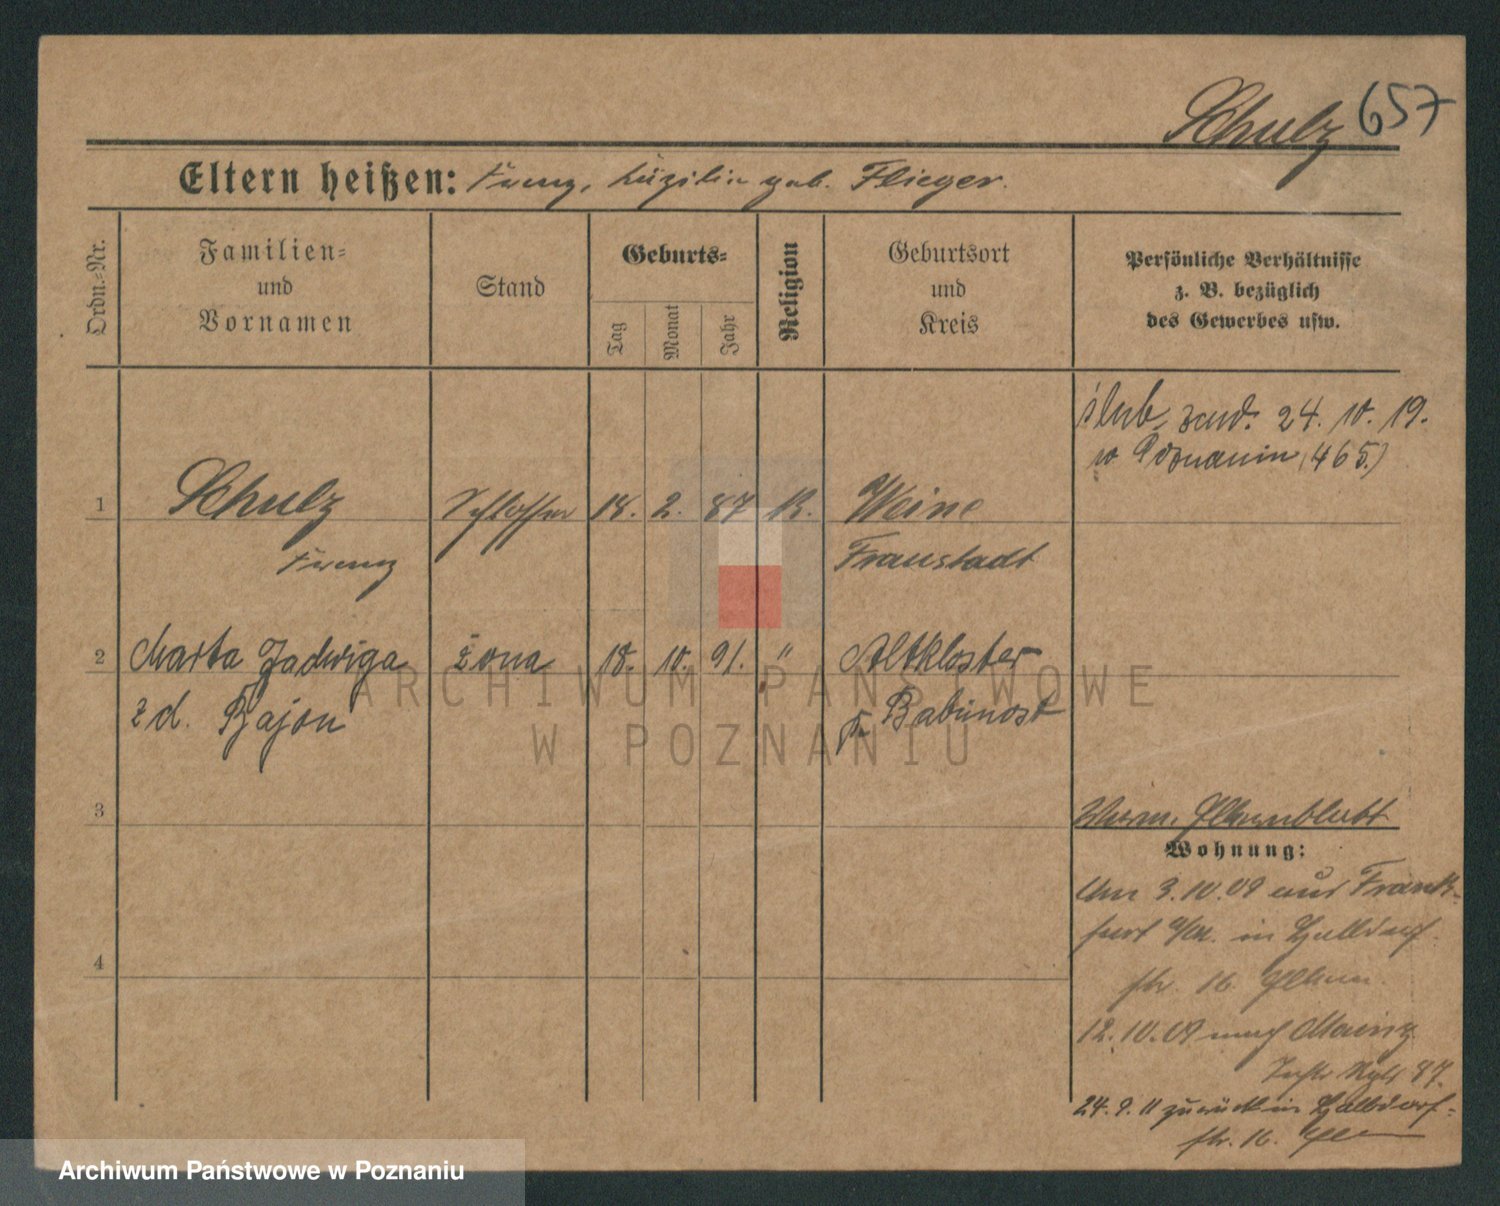 Schulz 657
Eltern heißen: Franz, Cäzilia geb. Flieger.
Ordn.-Nr.
Familien-
und
Vornamen
Stand
Geburts-
Tag
Monat
Jahr
Religion
Geburtsort
und
Kreis
Persönliche Verhältnisse
z. B. bezüglich
des Gewerbes usw.
ślub. zawd. 24. 10. 19.
w Poznaniu (465.)
1 Schulz Schlosser 18. 2. 87 K. Weine
Franz Fraustadt
2 Marta Jadwiga żona 18. 10. 91. " Altkloster
zd. Bajon Babimost
3
4
Elternblatt
Wohnung:
Am 3.10.09 aus Frank-
furt a/M. in Halbdorf-
str. 16. Eltern.
12.10.09 nach Mainz
87.
24. 9. 11 zurück in Halbdorf-
str. 16.
ARCHIWUM PAŃSTWOWE
W POZNANIU
Archiwum Państwowe w Poznaniu